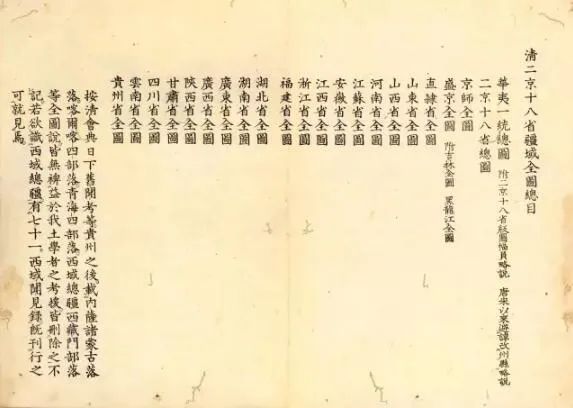 清二京十八省疆域全圖總目
華夷一統總圖 附二京十八省圖幅員略說 唐宋以來避諱改州縣略說
二京十八省總圖
京師全圖
盛京全圖 附吉林全圖 黑龍江全圖
直隸省全圖
山東省全圖
山西省全圖
河南省全圖
江蘇省全圖
安徽省全圖
江西省全圖
浙江省全圖
福建省全圖
湖北省全圖
湖南省全圖
廣東省全圖
廣西省全圖
陝西省全圖
甘肅省全圖
四川省全圖
雲南省全圖
貴州省全圖
按清會典日下舊聞考等貴州之後載內薩諸蒙古落
落喀爾喀四部落青海四部落西域總疆西藏門部落
等全圖說皆無裨益於我土學者之考援皆刪除之不
記若欲識西域總疆有七十一西域聞見錄既刊行之
可就見焉